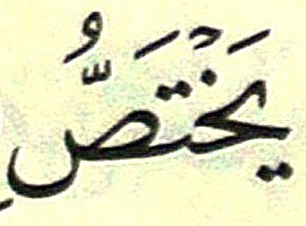 يَخْتَصُّ